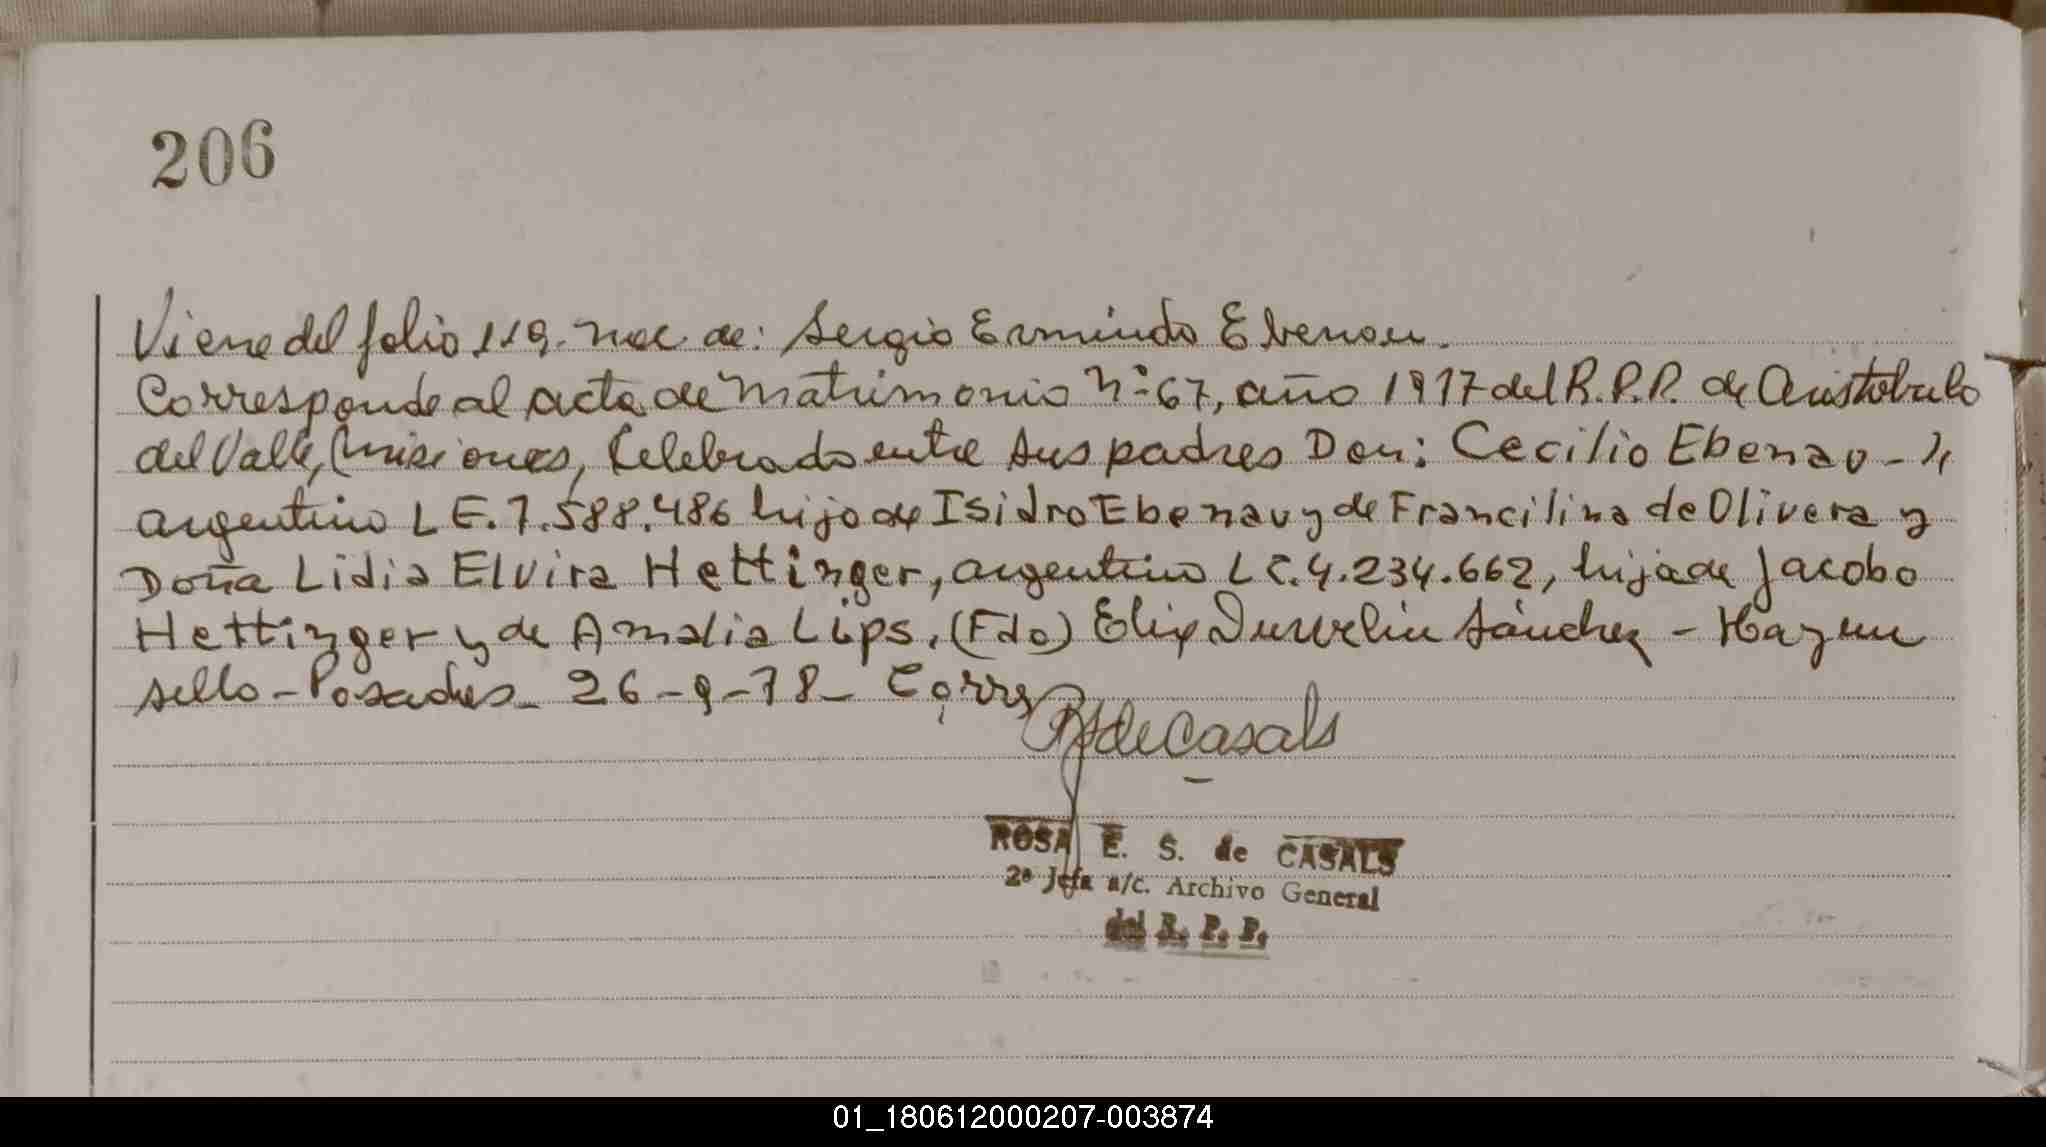 206
Viene del folio 119. nac de: Sergio Ermindo Ebenau.
Corresponde al acta de matrimonio nº 67, año 1977 del R.P.P. de Aristobulo
del Valle, Misiones, Celebrado entre sus padres Don: Cecilio Ebenao -
argentino L E. 7.588.486 hijo de Isidro Ebenau y de Francilina de Olivera y
Doña Lidia Elvira Hettinger, argentino L C. 4.234.662, hija de Jacobo
Hettinger y de Amalia Lips. (Fdo) Sánchez - Hay un
sello - Posadas - 26-9-78-
RS de Casals
ROSA E. S. de CASALS
2º Jefa a/c. Archivo General
del R. P. P.
01_180612000207-003874